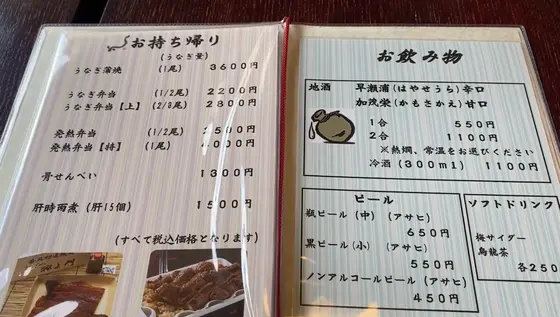 お持ち帰り
(うなぎ量)
うなぎ蒲焼 (1尾) 3600円
うなぎ弁当 (1/2尾) 2200円
うなぎ弁当【上】 (2/3尾) 2800円
発熱弁当 (1/2尾) 2500円
発熱弁当【特】 (1尾) 4000円
骨せんべい 1300円
肝時雨煮(肝15個) 1500円
(すべて税込価格となります)
お飲み物
地酒 早瀬浦(はやせうら)辛口
加茂栄(かもさかえ)甘口
1合 550円
2合 1100円
※熱燗、常温をお選びください
冷酒(300ml) 1100円
ビール
瓶ビール(中) (アサヒ)
650円
黒ビール(小) (アサヒ)
550円
ノンアルコールビール(アサヒ)
450円
ソフトドリンク
梅サイダー
烏龍茶
各250